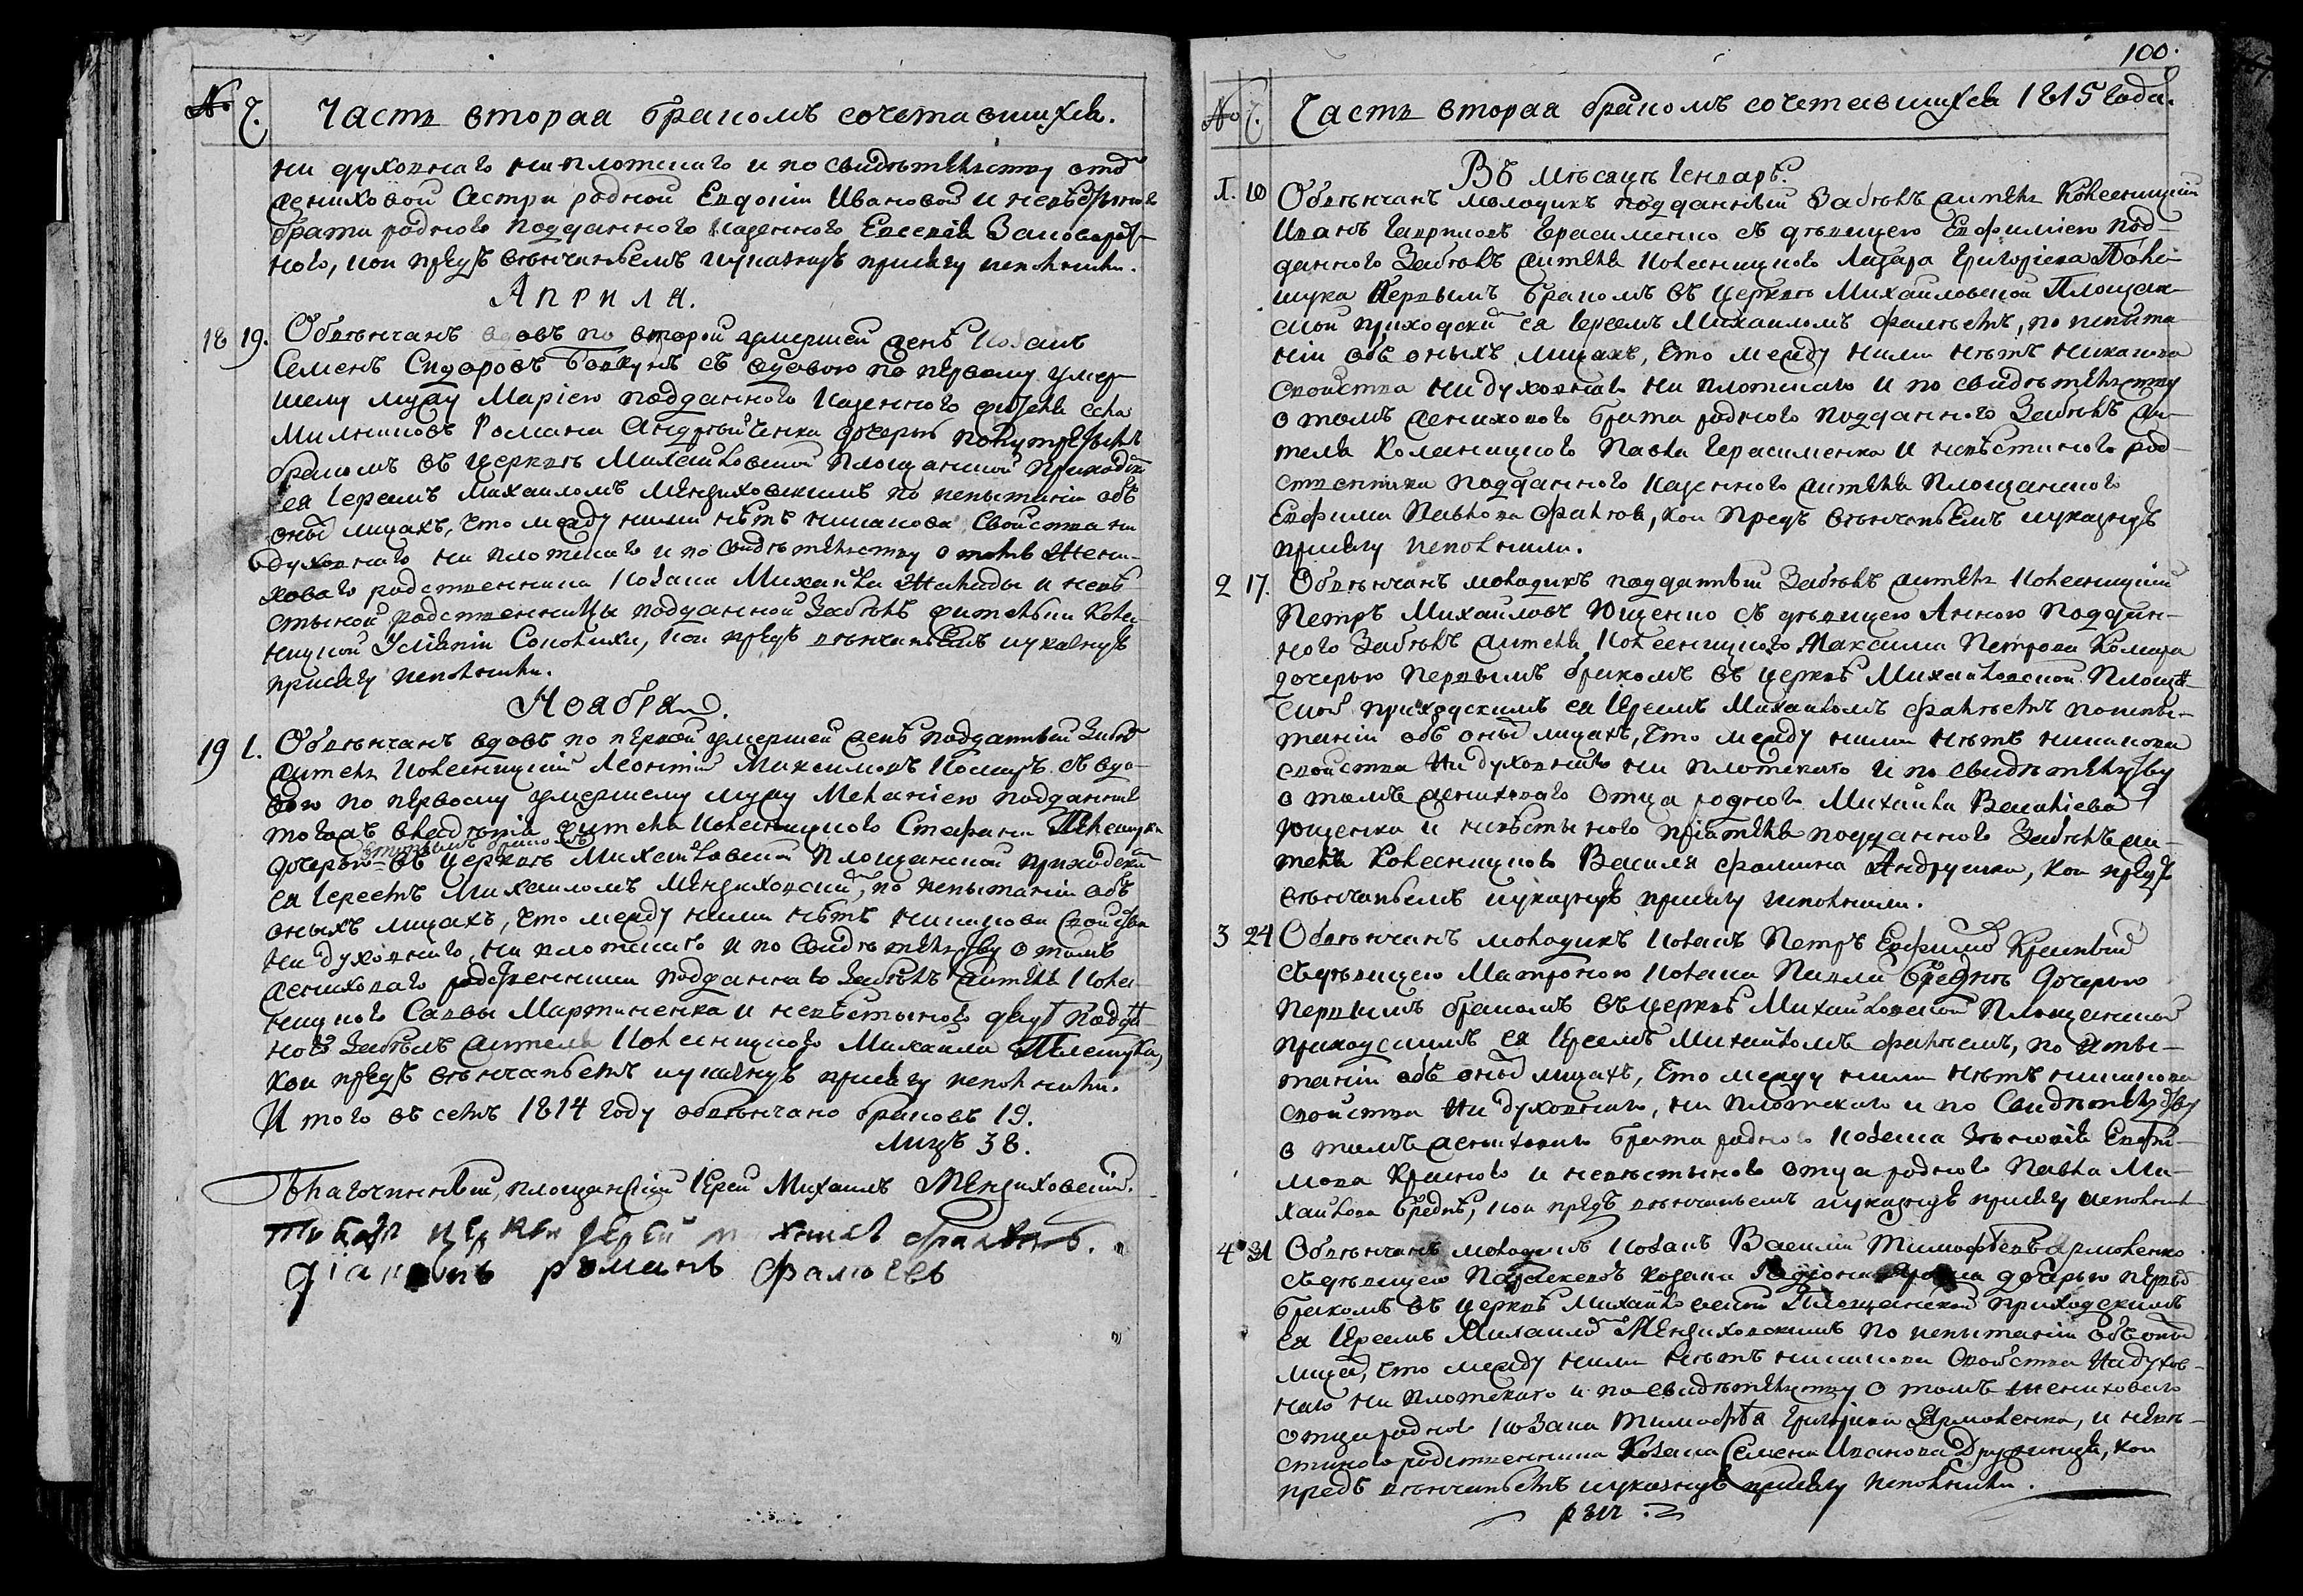 № Ч. Часть вторая бракомъ сочетавшихся.
ни духовнаго ни плотскаго и по свидѣтельству отъ
жениховой сестры родной Евдокіи Ивановой и невѣстиного
брата родного подданного казенного Евсевія
ного, кои предъ вѣнчаньемъ и указную присягу исполнили.
Априля.
18 19. Обвѣнчанъ вдовъ по второй умершей женѣ козакъ
Семенъ Сидоровъ Бовкунъ съ вдовою по первому умер-
шему мужу Маріею подданного казенного жителя села
Романа Андрѣйченка дочерью
бракомъ въ церквѣ Михайловской Площанской приходскимъ
ея Іереемъ Михаиломъ Менциховскимъ по испытаніи объ
оныхъ лицахъ, что между ними нѣтъ никакова свойства ни
духовнаго ни плотскаго и по свидѣтельству о томъ жени-
хового родственника козака Михайла Жикоды и невѣ-
стыной родственницы подданной Забѣлъ жительки Колес-
ницкой Уліянiи Соколихи, кои предъ вѣнчаньемъ и указную
присягу исполнили.
Ноября.
19 1. Обвѣнчанъ вдовъ по первой умершей женѣ подданный Забѣлъ
житель Колесницкій Леонтій Максимовъ Комаръ съ вдо-
вою по первому умершему мужу Меланіею подданного
тогожъ владѣнія жителя Колесницкого Стефана Телешука
вторымъ бракомъ
дочерью въ церквѣ Михайловской Площанской приходскимъ
ея Іереемъ Михаиломъ Менциховскимъ, по испытаніи объ
оныхъ лицахъ, что между ними нѣтъ никакова свойства
ни духовного, ни плотскаго и по свидѣтельству о томъ
женихового родственника подданнаго Забѣлъ жителя Колес-
ницкого Савы Мартиненка и невѣстыного дяди поддан-
ного Забѣлъ жителя Колесницкого Михаила Телешука,
кои предъ вѣнчаньемъ и указную присягу исполнили.
И того въ семъ 1814 году обвѣнчано браковъ 19.
лицъ 38.
Благочинный, площанскій Іерей Михаилъ Менциховскій.
Тоейже церкви Іерей Михаилъ
діаконъ романъ фалѣевъ
100.
№ Ч. Часть вторая бракомъ сочетавшихся 1815 года.
Въ мѣсяцѣ Генварѣ.
1. 10 Обвѣнчанъ молодикъ подданный Забѣлъ житель Колесницкій
Иванъ Гавриловъ Герасименко съ дѣвицею Евфиміею под-
данного Забѣлъ жителя Колесницкого Лазаря Григоріева Поле-
щука первымъ бракомъ въ церквѣ Михайловской Площан-
ской приходскимъ ея Іереемъ Михаиломъ Фалѣемъ, по испыта-
ніи объ оныхъ лицахъ, что между ними нѣтъ никакова
свойства ни духовнаго ни плотскаго и по свидѣтельству
о томъ женихового брата родного подданного Забѣлъ жи-
теля Колесницкого Павла Герасименка и невѣстиного род-
ственника подданного казенного жителя Площанского
Евфима Павлова Фалѣя, кои предъ вѣнчаньемъ и указную
присягу исполнили.
2 17. Обвѣнчанъ молодикъ подданный Забѣлъ житель Колесницкій
Петръ Михаиловъ Ющенко съ дѣвицею Анною поддан-
ного Забѣлъ жителя Колесницкого Максима Петрова Комара
дочерью первымъ бракомъ въ церквѣ Михайловской Площан-
ской приходскимъ ея Іереемъ Михаиломъ Фалѣемъ по испы-
таніи объ оныхъ лицахъ, что между ними нѣтъ никакова
свойства ни духовнаго ни плотскаго и по свидѣтельству
о томъ женихового отца родного Михайла Василіева
Ющенка и невѣстыного пріятеля подданного Забѣлъ жи-
теля Колесницкого Василя Фомина Андрушка, кои предъ
вѣнчаньемъ и указную присягу исполнили.
3 24 Обвѣнчанъ молодикъ козакъ Петръ Евфимовъ Кривый
съ дѣвицею Матроною козака Павла Бредня дочерью
первымъ бракомъ въ церквѣ Михайловской Площанской
приходскимъ ея Іереемъ Михайломъ Фалѣемъ, по испы-
таніи объ оныхъ лицахъ, что между ними нѣтъ никакова
свойства ни духовнаго, ни плотскаго и по свидѣтельству
о томъ женихового брата родного козака Зѣновія Евфи-
мова Кривого и невѣстыного отца родного Павла Ми-
хайлова Бредня, кои предъ вѣнчаньемъ и указную присягу исполнили
4 31 Обвѣнчанъ молодикъ козакъ Василій Тимофѣевъ Ярмоленко
съ дѣвицею Параскевою козака дочерью первымъ
бракомъ въ церквѣ Михайловской Площанской приходскимъ
ея Іереемъ Михаиломъ Менциховскимъ по испытаніи объ оныхъ
лицахъ, что между ними нѣтъ никакова свойства ни духов-
наго ни плотскаго и по свидѣтельству о томъ женихового
отца родного козака Тимофѣя Григоріева Ярмоленка, и невѣ-
стиного родственника козака Семена Иванова Дружинца, кои
предъ вѣнчаньемъ и указную присягу исполнили.